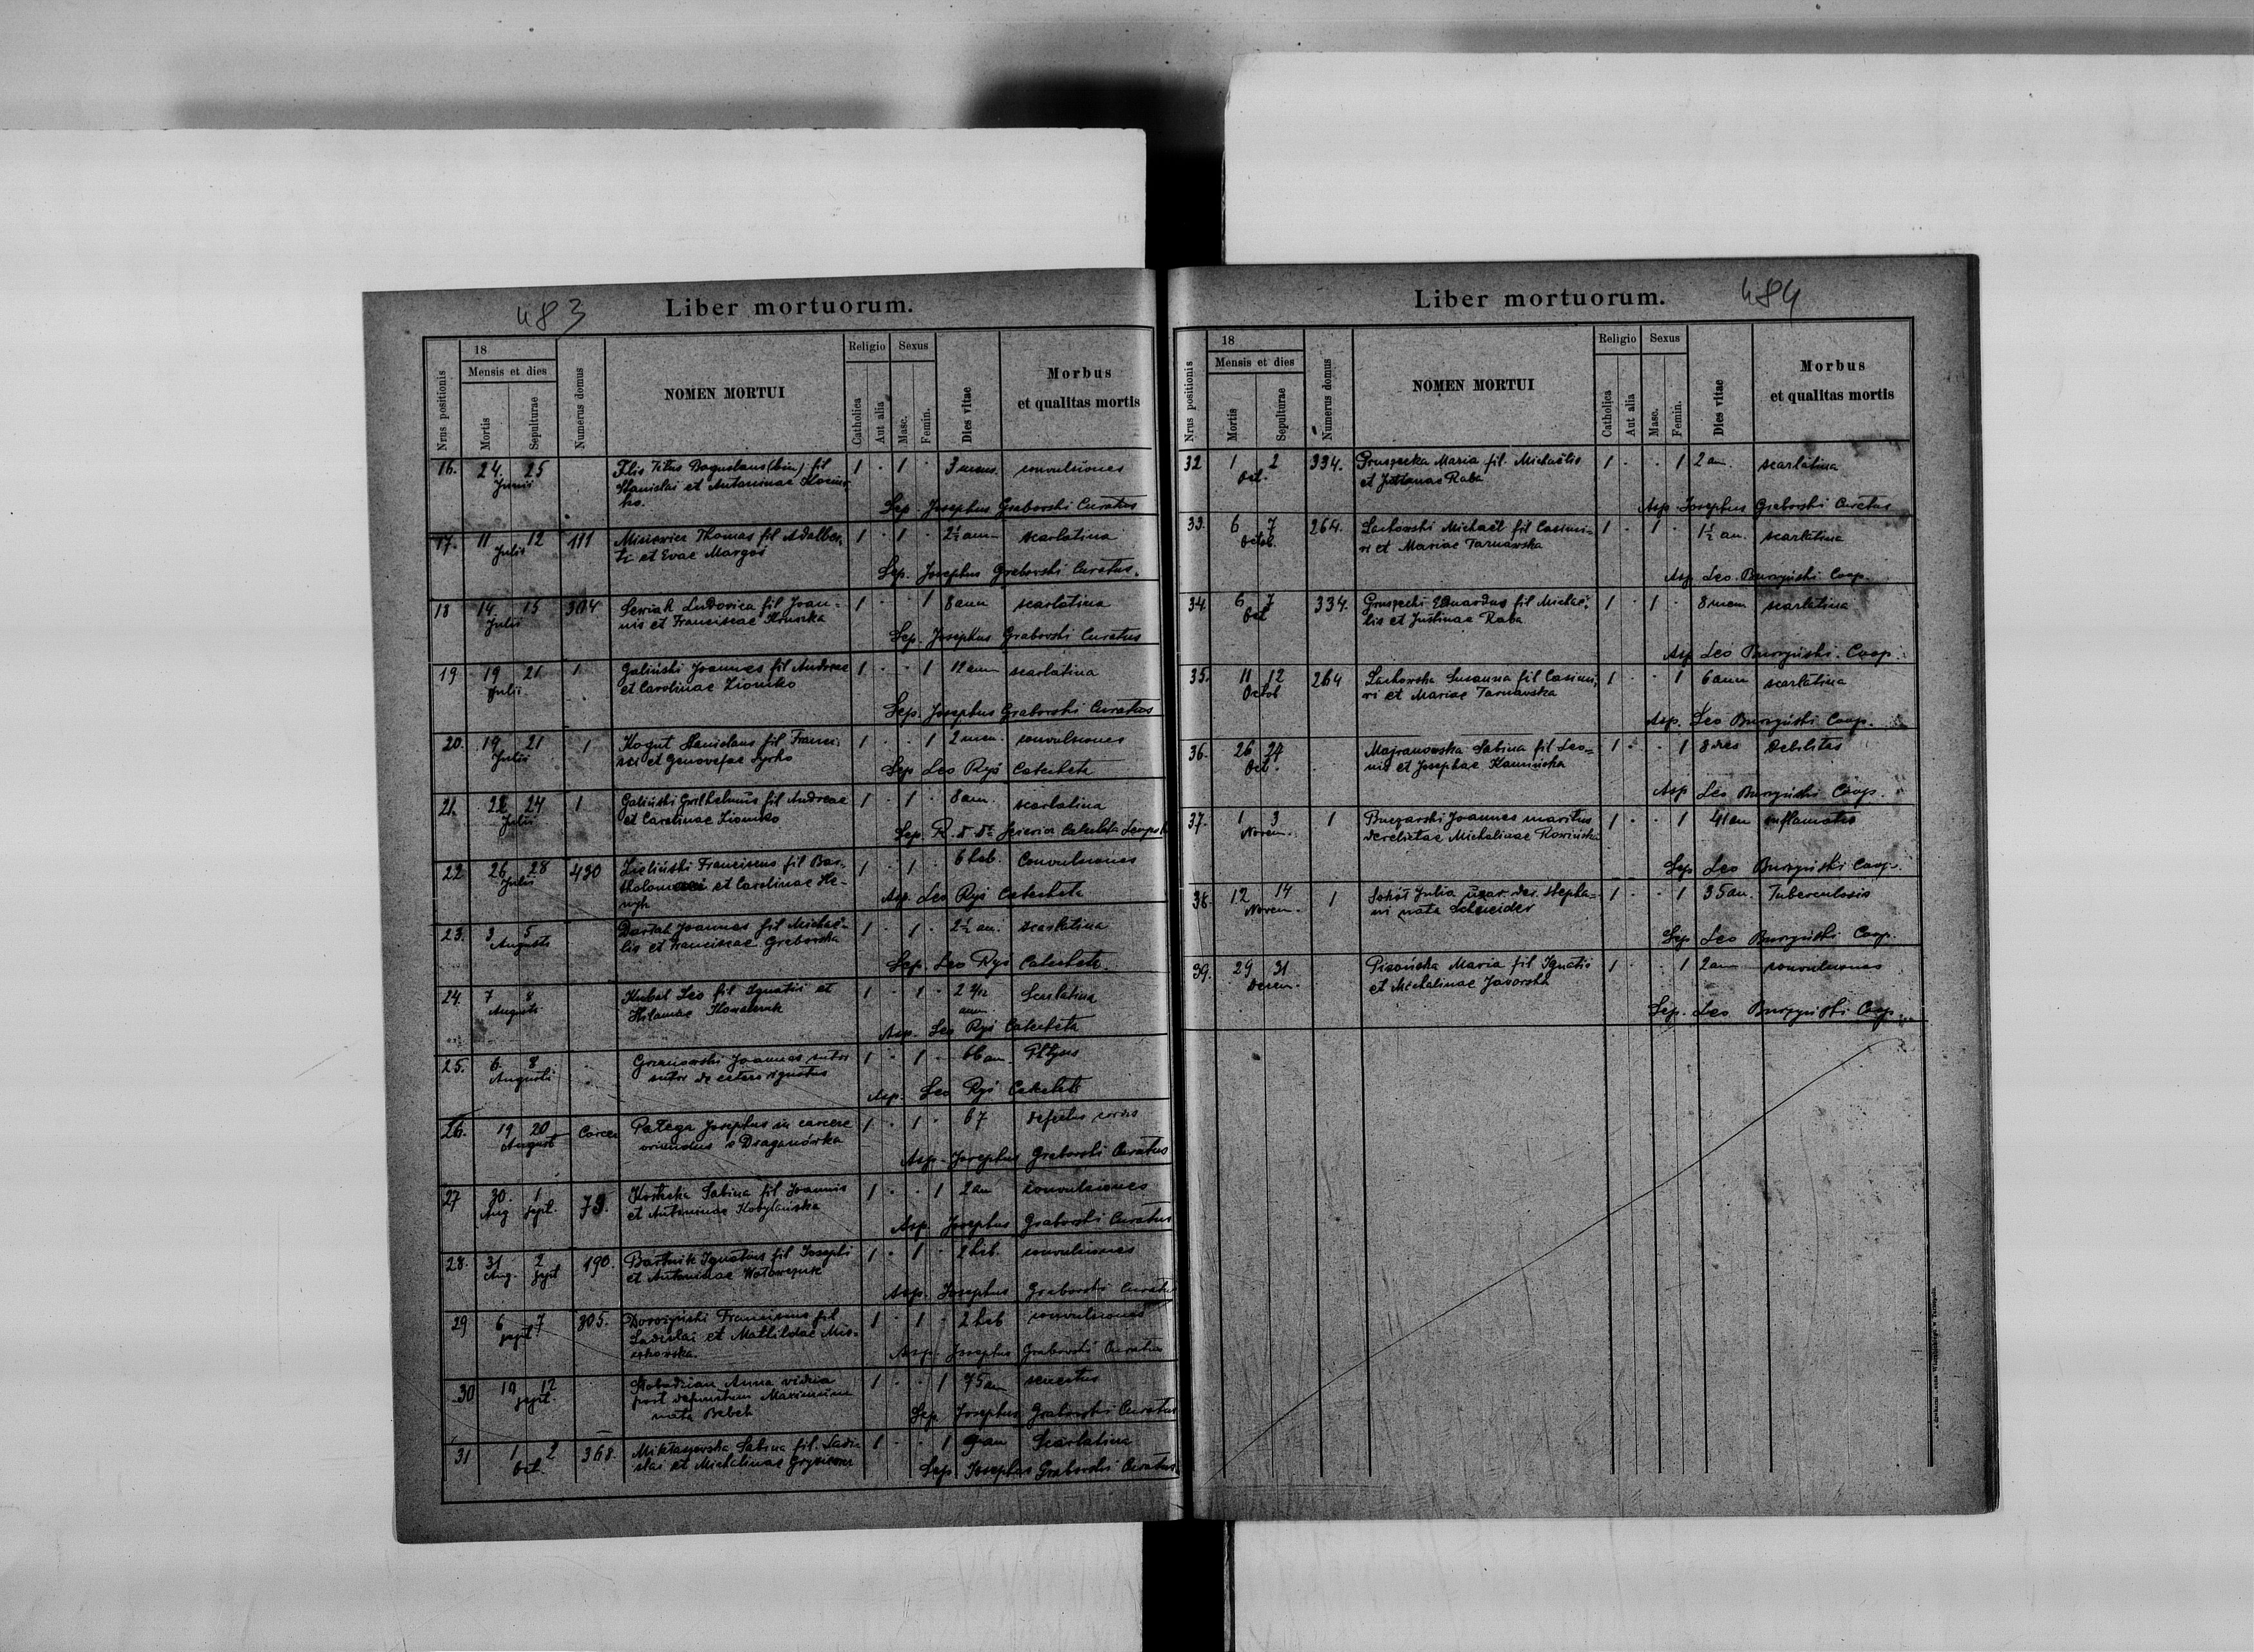 483
Liber mortuorum.
Nrus positionis
18
Mensis et dies
Mortis
Sepulturae
Numerus domus
NOMEN MORTUI
Religio
Catholica
Aut alia
Sexus
Masc.
Femin.
Dies vitae
Morbus
et qualitas mortis
16. 24. 25 Filis Titus Boguslaus (bin) fil 1 . 1 . 3 mens. convulsiones
Junii Stanislai et Antoninae
Sep. Josephus Grabovski Curatus
17. 11 12 111 Misiewicz Thomas fil Adalber- 1 . 1 . 2½ ann scarlatina
Julii ti et Evae Margos
Sep. Josephus Grabovski Curatus.
18 14 15 304 Seniak Ludovica fil Joan- 1 . . 1 8 ann scarlatina
Julii nis et Franciscae Kruszka
Sep. Josephus Grabovski Curatus
19 19 21 1 Galiński Joannes fil Andreae 1 . . 1 12 ann scarlatina
Julii et Carolinae Ziomko
Sep. Josephus Grabovski Curatus
20. 19 21 1 Kogut Stanislaus fil Franci- 1 . . 1 2 men. convulsiones
Julii sci et Genovefae Syrko
Sep Leo Ryś Catecheta
21. 22 24 1 Galiński Guilhelmus fil Andreae 1 . 1 . 8 am. scarlatina
Julii et Carolinae Ziomko
Sep. Catecheta
22 26 28 430 Zieliński Franciscus fil Bar- 1 . 1 . 6 heb. Convulsiones
Julii tholomaei et Carolinae He-
nryk
Asp. Leo Ryś Catecheta
23. 3 5 Joannes fil Michaë- 1 . 1 . 2½ an. scarlatina
Augusti lis et Franciscae Grabovska
Sep. Leo Ryś Catecheta.
24. 7 8 Kubal Leo fil Ignatii et 1 . 1 . 2 Scarlatina
Augusti Kowalczuk ann
Asp. Leo Ryś Catecheta
25. 6 8 Joannes sutor 1 . 1 . 66 an. Phtysis
Augusti
Asp. Leo Ryś Catecheta
26. 19 20 Carcer Pałega Josephus in carcere 1 . 1 . 67 defectus
August oriundus e Draganówka
Asp. Josephus Grabovski Curatus
27 30. 1 79. Sabina fil Joannis 1 . . 1 2 an convulsiones
Aug Sept. et Antoninae Kobylańska
Asp. Josephus Grabovski Curatus
28. 31 2 190. Bartnik Ignatius fil Josephi 1 . 1 . 2 heb. convulsiones
Aug. Sept et Antoninae Wołowczuk
Asp. Josephus Grabovski Curatus
29 6 7 305. Doroszyński Franciscus fil 1 . 1 . 2 heb convulsiones
sept Ladislai et Mathildae Mis-
zkowska.
Asp. Josephus Grabovski Curatus
30 19 12 Slobodzian Anna vidua 1 . . 1 75 an senectus
sept. post defunctum Maximum
nata Bebeh
Sep. Josephus Grabovski Curatus
31 1 2 368. Mikłaszewska Sabina fil. Ladi- 1 . . 1 9 an Scarlatina
Oct. slai et Michalinae
Sep. Josephus Grabovski Curatus.
Liber mortuorum.
484
Nrus positionis
18
Mensis et dies
Mortis
Sepulturae
Numerus domus
NOMEN MORTUI
Religio
Catholica
Aut alia
Sexus
Masc.
Femin.
Dies vitae
Morbus
et qualitas mortis
32 1 2 334. Gruszecka Maria fil. Michaëlis 1 . . 1 2 an. scarlatina
Oct. et Justinae Raba
Asp Josephus Grabovski Curatus
33. 6 7 264. Lachowski Michaël fil Casimi- 1 . 1 . 1½ an. scarlatina
Octob. ri et Mariae Tarnawska
Asp Leo Burzyński Coop.
34. 6 7 334. Gruszecki Eduardus fil Michaë- 1 . 1 . 8 mem scarlatina
Oct lis et Justinae Raba
Asp Leo Burzyński Coop.
35. 11 12 264 Lachowska Susanna fil Casimi- 1 . . 1 6 ann scarlatina
Octob ri et Mariae Tarnawska
Asp. Leo Burzyński Coop.
36. 26 27 Majranowska Sabina fil Leo- 1 . . 1 8 dies Debilitas
Oct. nis et Josephae Kamińska
Asp Leo Burzyński Coop.
37. 1 3 1 Joannes maritus 1 . . 1 41 an inflamatio
Novem. derelictae Michalinae Rosińska
Sep Leo Burzyński Coop.
38. 12 14 1 Sokół Julia uxor der. Stepha- 1 . . 1 35 an. Tuberculosis
Novem. ni nata Schneider
Sep Leo Burzyński Coop.
39. 29 31 Pisońska Maria fil Ignatii 1 . . 1 2 an convulsiones
Decem. et Michalinae Javorska
Sep. Leo Burzyński Coop.